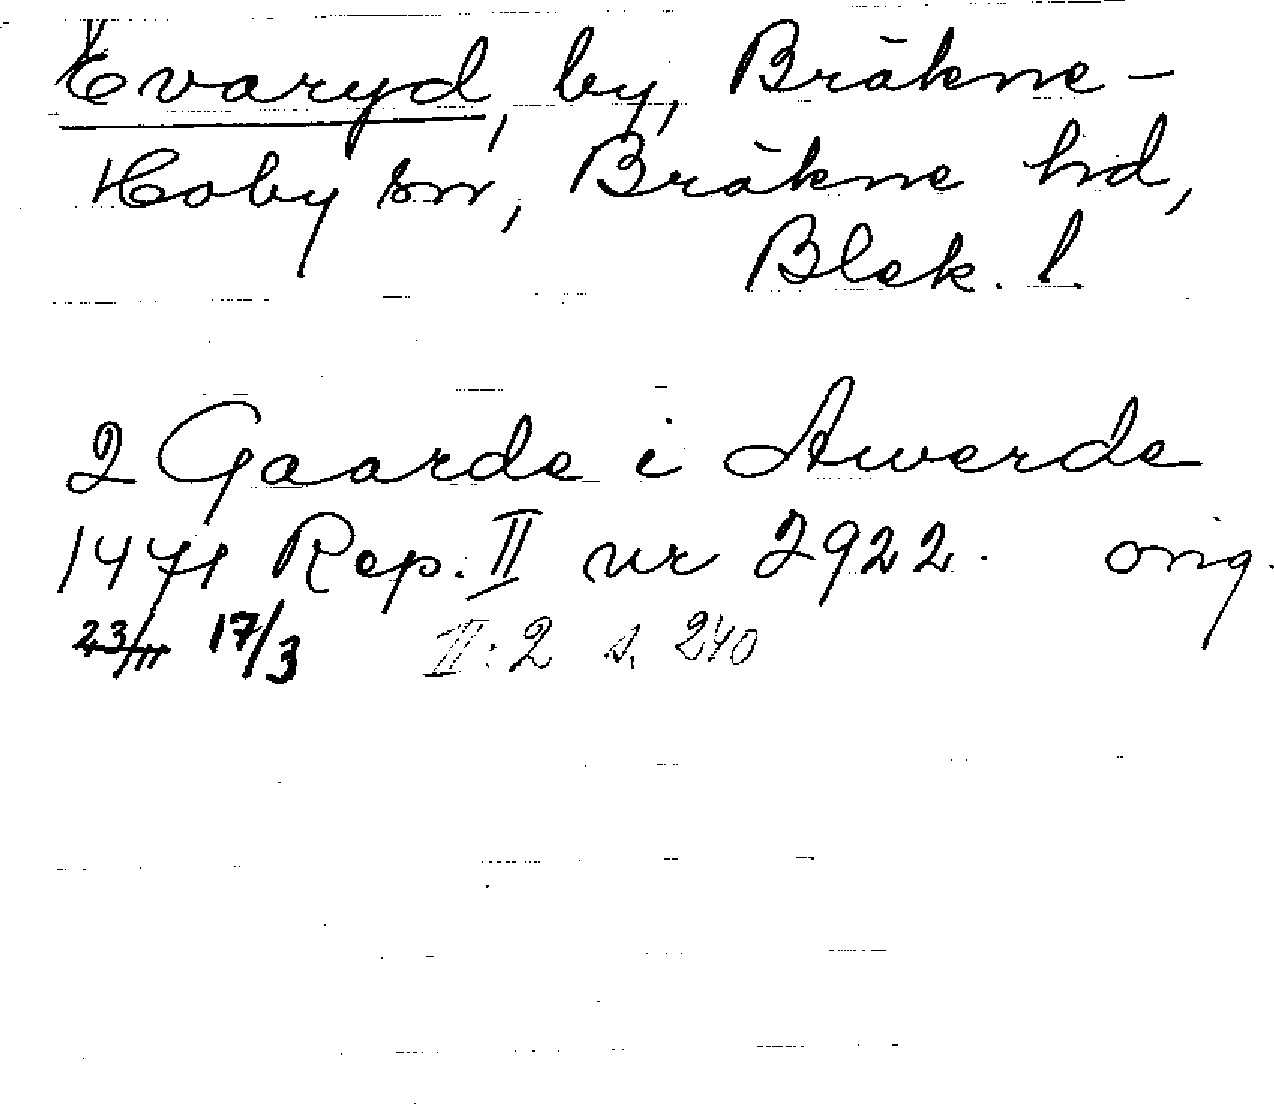 Evaryd, by, Bräkne-
Hoby sn, Bräkne hd,
Blek. l.
2 Gaarde i Awerde
1471 Rep. II nr 2922. orig.
23/II 17/3 II:2 s. 240